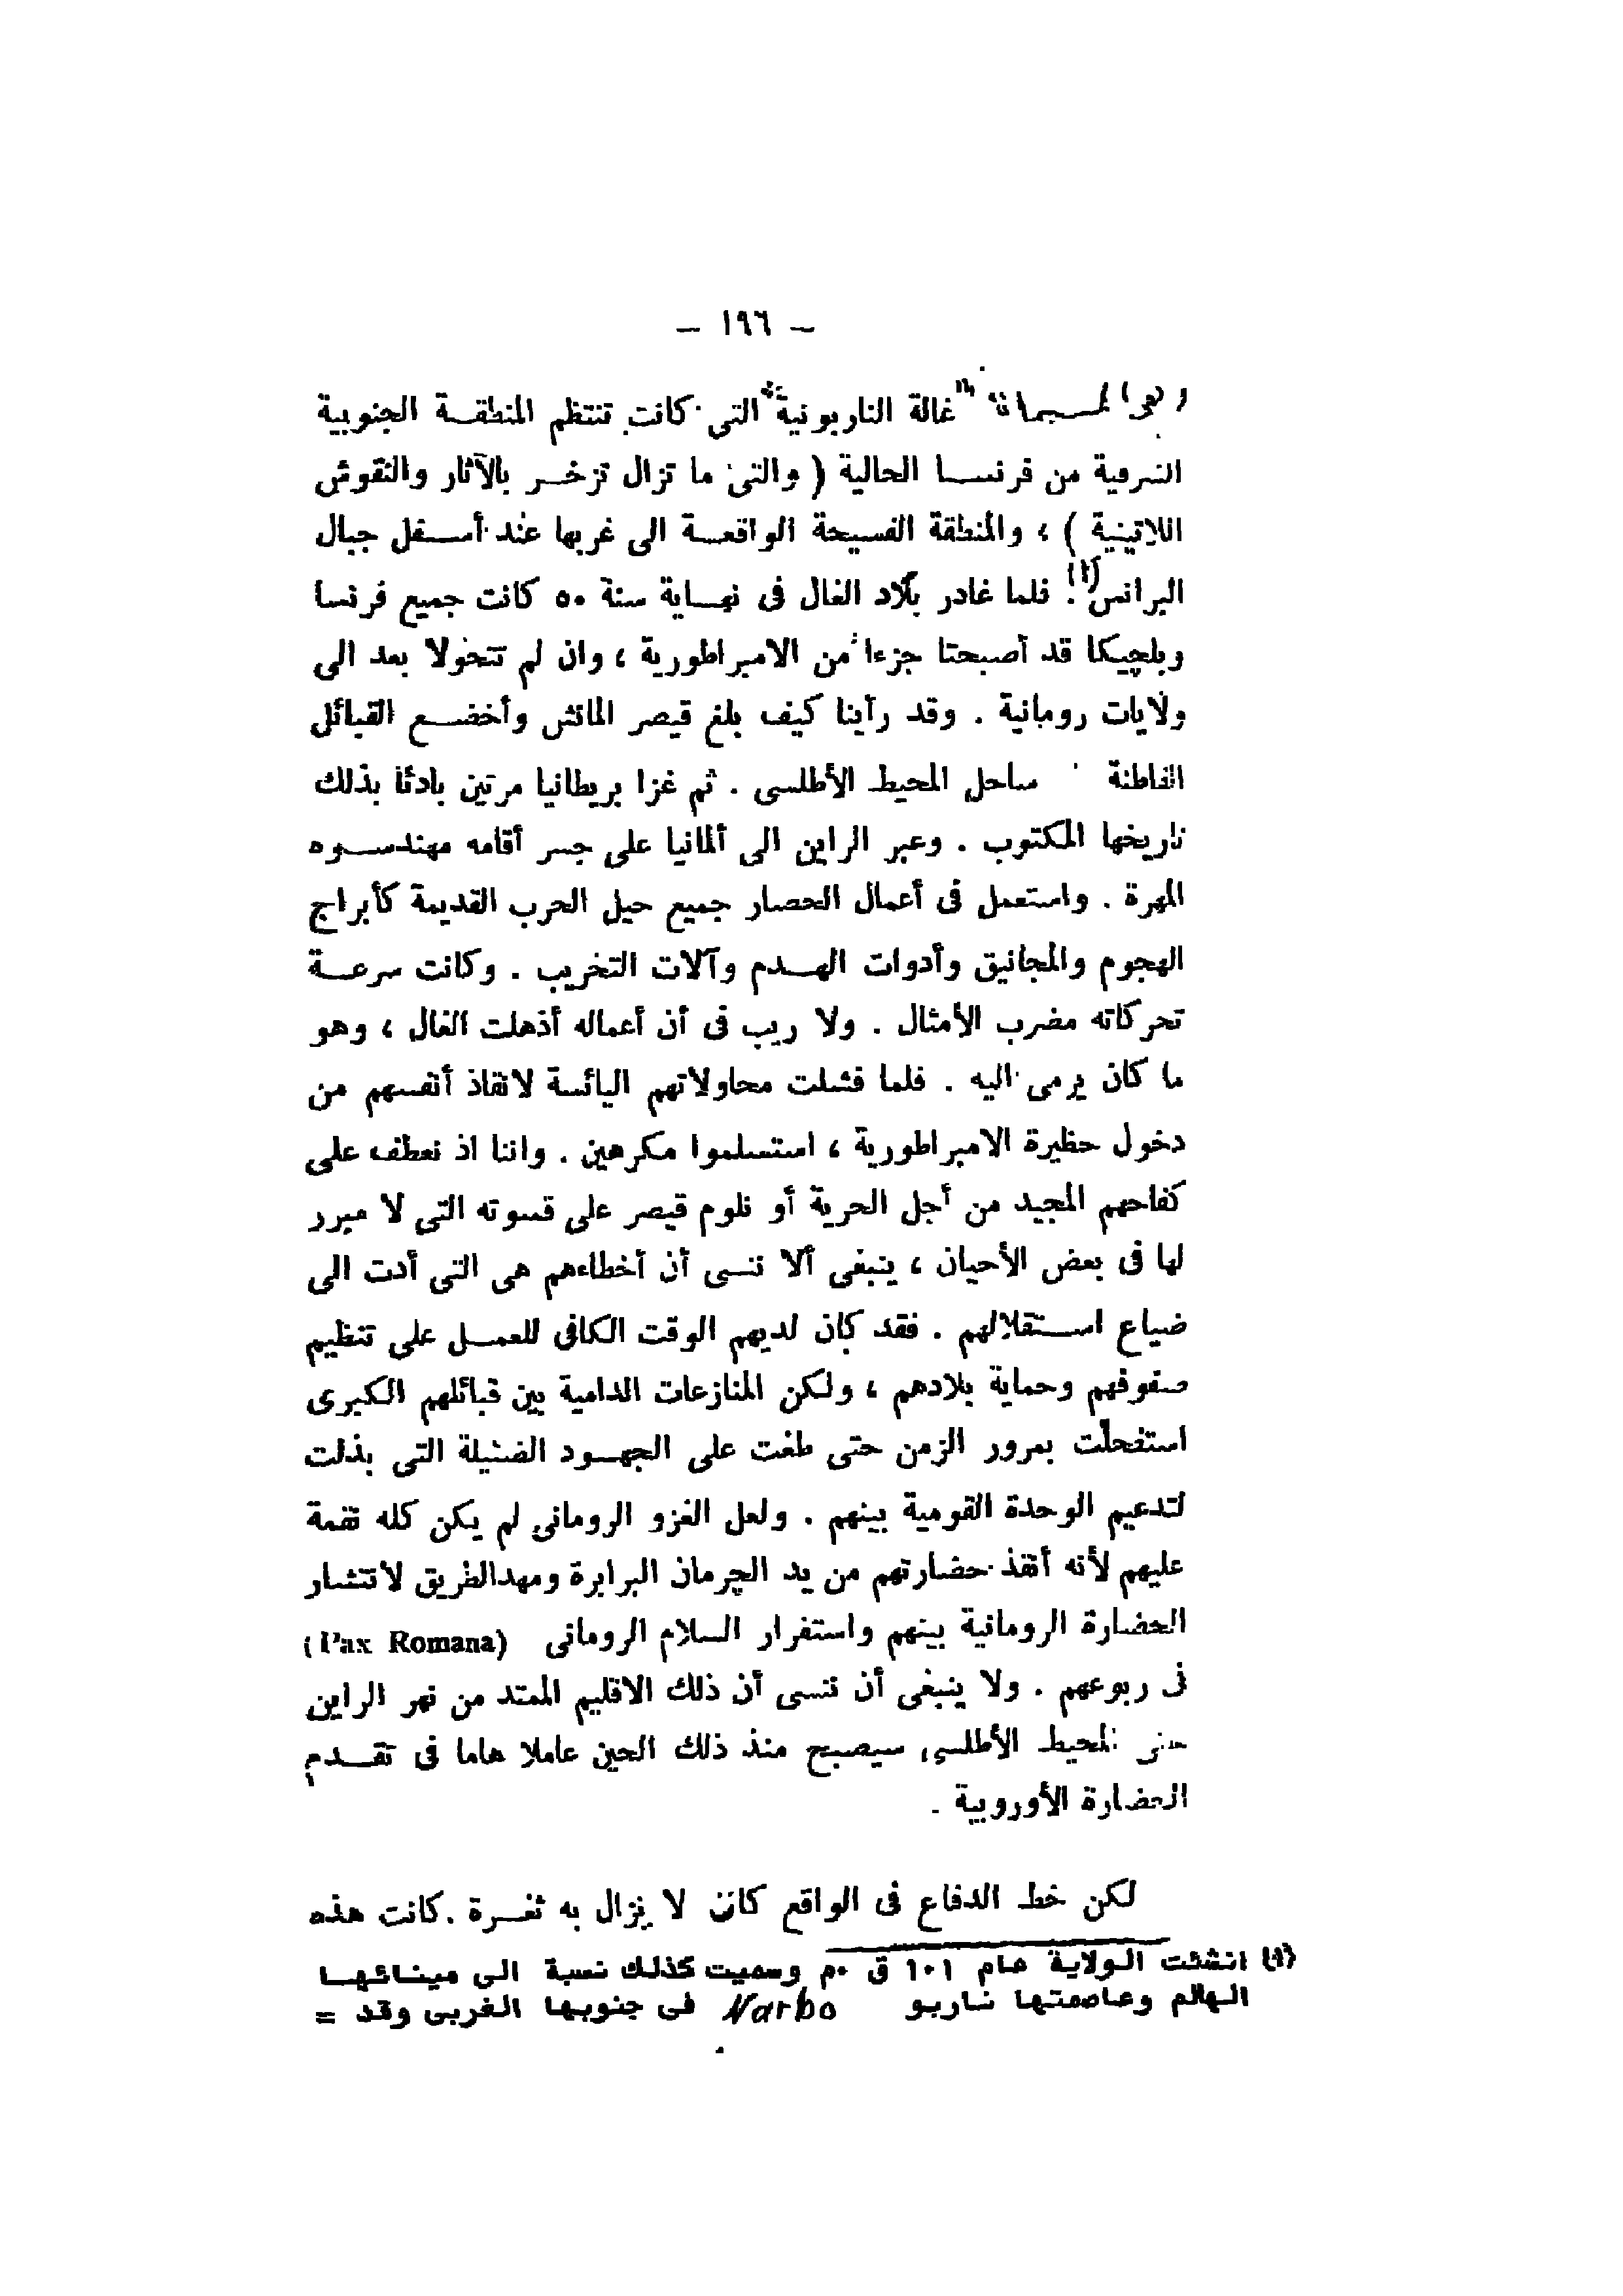 – ١٩٦ –
" غالة الناربونية " التى كانت تنتظم المنطقة الجنوبية
الشرقية من فرنسا الحالية ( والتى ما تزال تزخر بالآثار والنقوش
اللاتينية ) ، والمنطقة الفسيحة الواقعة الى غربها عند أسفل جبال
البرانس(١) . فلما غادر بلاد الغال فى نهاية سنة ٥٠ كانت جميع فرنسا
وبلچيكا قد أصبحتا جزءا من الامبراطورية ، وان لم تتحولا بعد الى
ولايات رومانية . وقد رأينا كيف بلغ قيصر المانش وأخضع القبائل
القاطنة ساحل المحيط الأطلسى . ثم غزا بريطانيا مرتين بادئا بذلك
تاريخها المكتوب . وعبر الراين الى ألمانيا على جسر أقامه مهندسوه
المهرة . واستعمل فى أعمال الحصار جميع حيل الحرب القديمة كأبراج
الهجوم والمجانيق وأدوات الهدم وآلات التخريب . وكانت سرعة
تحركاته مضرب الأمثال . ولا ريب فى أن أعماله أذهلت الغال ، وهو
ما كان يرمى اليه . فلما فشلت محاولاتهم اليائسة لانقاذ أنفسهم من
دخول حظيرة الامبراطورية ، استسلموا مكرهين . واننا اذ نعطف على
كفاحهم المجيد من أجل الحرية أو نلوم قيصر على قسوته التى لا مبرر
لها فى بعض الأحيان ، ينبغى ألا ننسى أن أخطاءهم هى التى أدت الى
ضياع استقلالهم . فقد كان لديهم الوقت الكافى للعمل على تنظيم
صفوفهم وحماية بلادهم ، ولكن المنازعات الدامية بين قبائلهم الكبرى
استفحلت بمرور الزمن حتى طغت على الجهود الضئيلة التى بذلت
لتدعيم الوحدة القومية بينهم . ولعل الغزو الرومانى لم يكن كله نقمة
عليهم لأنه أنقذ حضارتهم من يد الچرمان البرابرة ومهدالطريق لانتشار
الحضارة الرومانية بينهم واستقرار السلام الرومانى (Pax Romana)
فى ربوعهم . ولا ينبغى أن ننسى أن ذلك الاقليم الممتد من نهر الراين
حتى المحيط الأطلسى سيصبح منذ ذلك الحين عاملا هاما فى تقدم
الحضارة الأوروبية .
لكن خط الدفاع فى الواقع كان لا يزال به ثغرة . كانت هذه
(١) انشئت الولاية عام ١٠١ ق ٠م وسميت كذلك نسبة الى مينائها
الهام وعاصمتها ناربو Narbo فى جنوبها الغربى وقد =